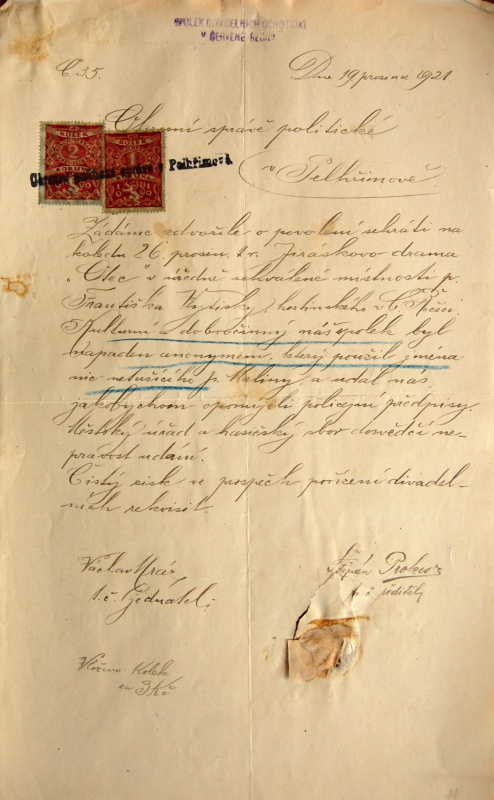 SPOLEK DIVADELNÍCH OCHOTNÍKŮ
V ČERVENÉ ŘEČICI
Č. 35.
Dne 19 prosince 1921.
Okresní správě politické
v Pelhřimově
KOLEK
KOLEK
1
Okresní politická správa v Pelhřimově
Žádáme zdvořile o povolení sehráti na
koledu 26. prosin. t. r. Jiráskovo drama
„Otec" v úředně schválené místnosti p.
Františka Vytisky, hostinského v Č. Řečici.
Kulturní a dobročinný náš spolek byl
napaden anonymem, který použil jména
nic netušícího p. Maliny, a udal nás,
jakobychom opomíjeli policejní předpisy.
Městský úřad a hasičský sbor dosvědčí ne-
pravost udání.
Čistý zisk ve prospěch pořízení divadel-
ních rekvisit.
Václav
t. č. jednatel;
Štěpán Prokeš
t. č. ředitel
Vložena Kolek
za 3 Kč